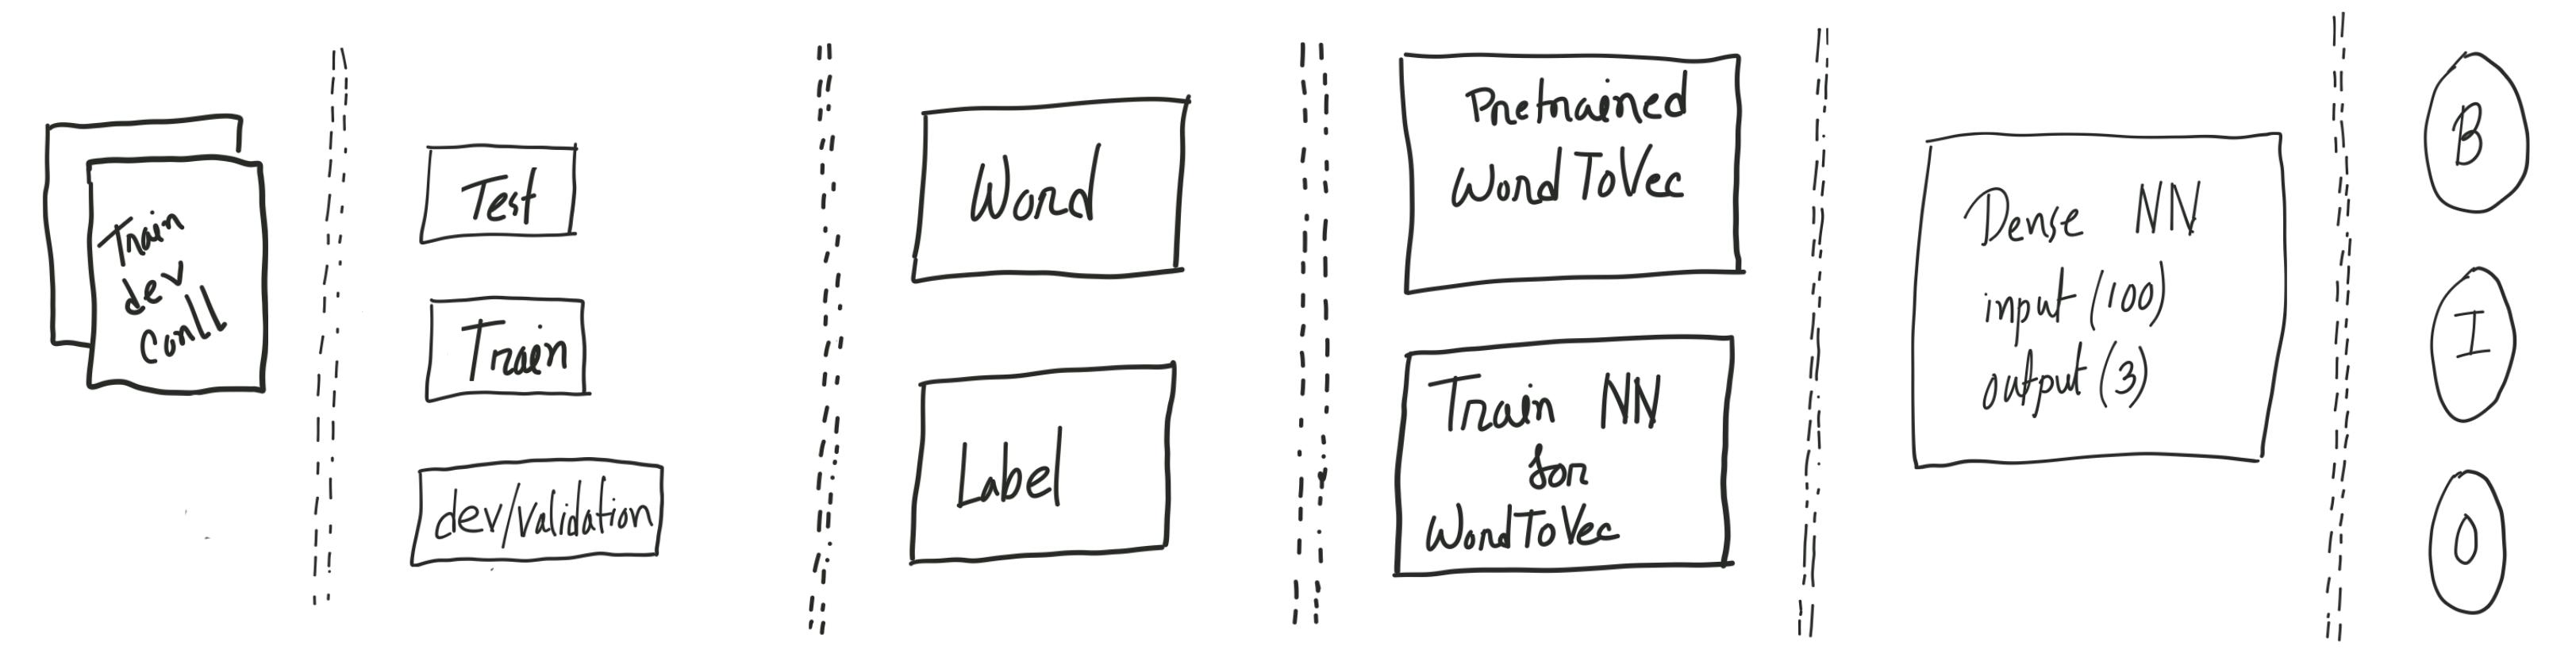 Train
dev
Conll
Test
Train
dev/validation
Word
Label
Pretrained
WordToVec
Train NN
for
WordToVec
Dense NN
input (100)
output (3)
B
I
O